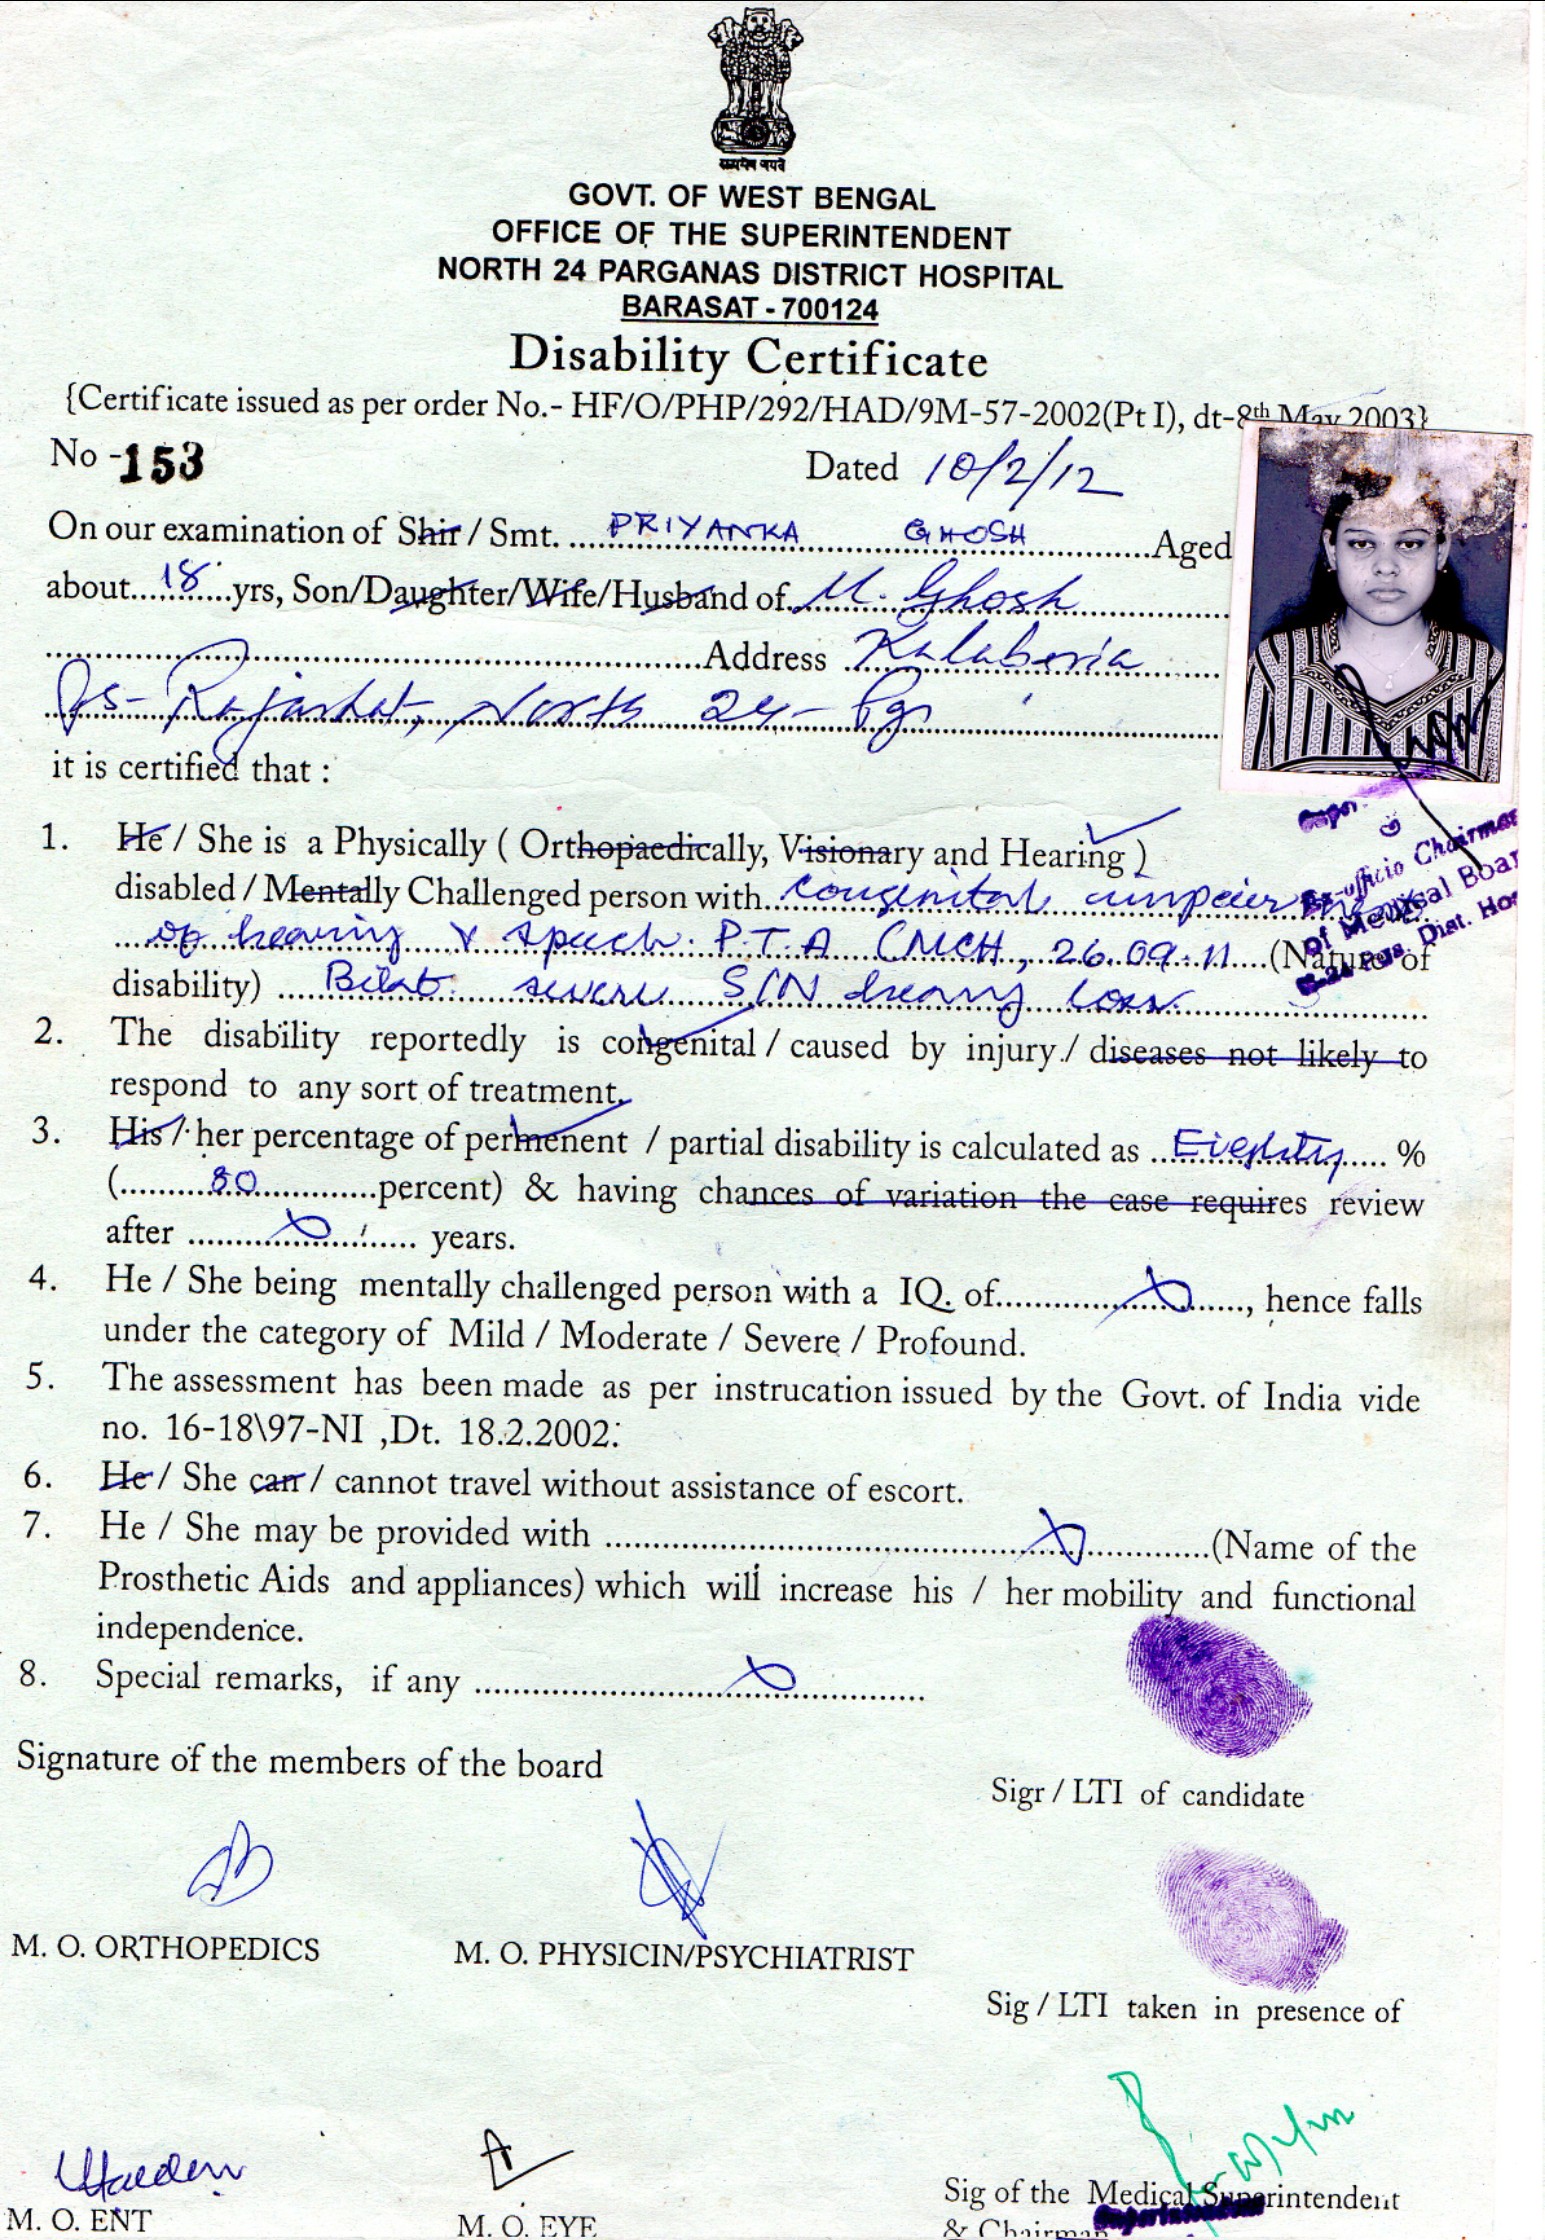 सत्यमेव जयते
GOVT. OF WEST BENGAL
OFFICE OF THE SUPERINTENDENT
NORTH 24 PARGANAS DISTRICT HOSPITAL
BARASAT - 700124
Disability Certificate
{Certificate issued as per order No.- HF/O/PHP/292/HAD/9M-57-2002(Pt I), dt-8th May 2003}
No -153 Dated 10/2/12
On our examination of Shir / Smt. PRIYANKA GHOSH Aged
about 18 yrs, Son/Daughter/Wife/Husband of M. Ghosh
Address Kalaberia
Ps- Rajarhat, North 24- Pgs
it is certified that :
1. He / She is a Physically ( Orthopaedically, Visionary and Hearing )
disabled / Mentally Challenged person with congenital
of hearing & speech. P.T.A CMCH, 26.09.11 (Nature of
disability) Bilat. severe S/N hearing loss.
Ex-officio Chairman
Of Medical Boar
Pgs. Dist. Hos
2. The disability reportedly is congenital / caused by injury./ diseases not likely to
respond to any sort of treatment.
3. His / her percentage of permenent / partial disability is calculated as Eieghty %
( 80 percent) & having chances of variation the case requires review
after years.
4. He / She being mentally challenged person with a IQ. of , hence falls
under the category of Mild / Moderate / Severe / Profound.
5. The assessment has been made as per instrucation issued by the Govt. of India vide
no. 16-18\97-NI ,Dt. 18.2.2002.
6. He / She can / cannot travel without assistance of escort.
7. He / She may be provided with (Name of the
Prosthetic Aids and appliances) which will increase his / her mobility and functional
independence.
8. Special remarks, if any
Signature of the members of the board
Sigr / LTI of candidate
M. O. ORTHOPEDICS M. O. PHYSICIN/PSYCHIATRIST
Sig / LTI taken in presence of
Sig of the Medical Superintendent
M. O. ENT M. O. EYE & Chairman